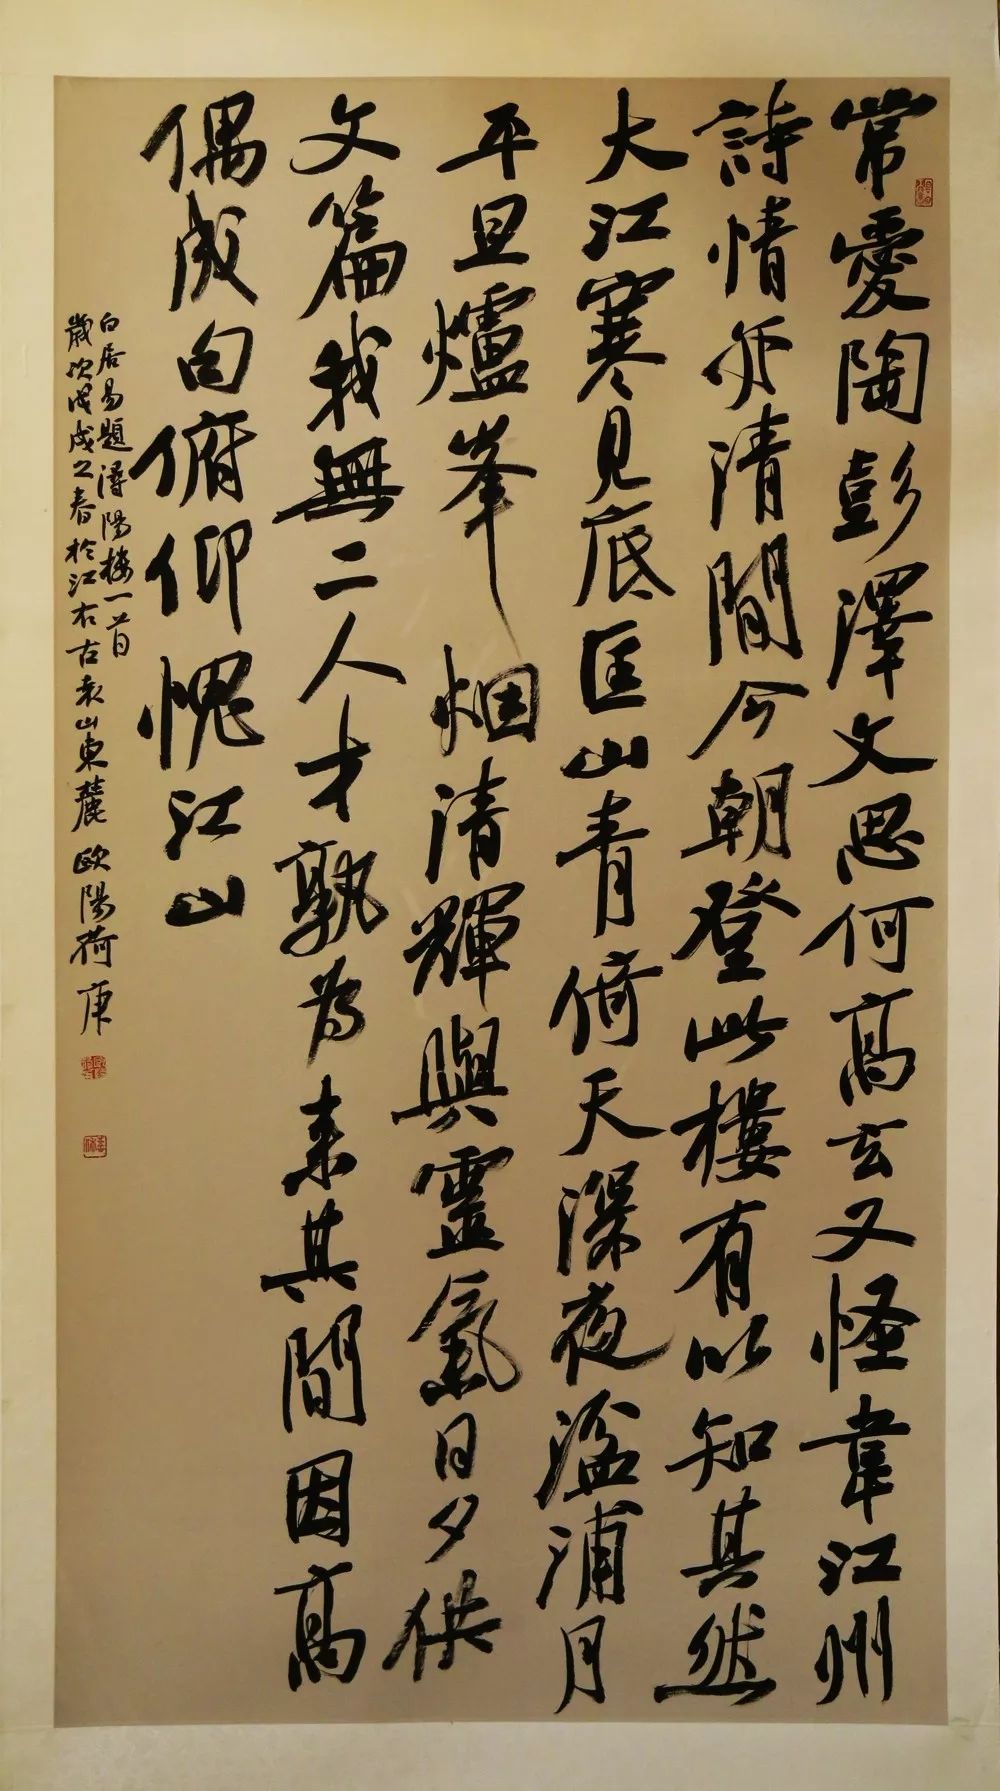 常愛陶彭澤文思何高玄又怪韋江州
詩情亦清閒今朝登此樓有以知其然
大江寒見底匡山青倚天深夜湓浦月
平旦爐峯烟清輝與靈氣日夕供
文篇我無二人才孰為来其間因高
偶成句俯仰愧江山
白居易題潯陽樓一首
歲次戊戌之春於江右古袁山東麓歐陽荷庚